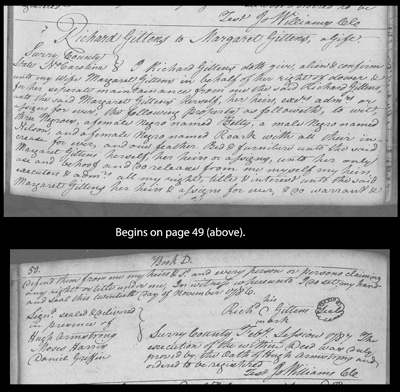 Test Jo Williams Clk
Richard Gittens to Margaret Gittens, a Gift
Surry County
State No. Carolina & I Richard Gittens doth give, alien & confirm
unto my wife Margaret Gittens in behalf of her right of dower &
for her separate maintainance from me the said Richard Gittens,
unto the said Margaret Gittens herself, her heirs, exrs admrs or
assigns for ever, the following presents, as followeth, to wit,
three Negroes, a female Negro named Fetty, a male Negro named
Nelson, and a female Negro named Roark with all their in
crease for ever, and one feather Bed & furniture unto the said
Margaret Gittens herself her heirs or assigns, unto her only
use and behoof and do release from me myself my heirs
executors & admrs all my right, title & interest unto the said
Margaret Gittens her heirs & assigns for ever, & do warrant &
Begins on page 49 (above).
50. Book D.
defend them from me my heirs &c and every person or persons claiming
any right or title under me. In witness whereunto I do set my hand
and seal this twentieth day of November 1786.
his
Signd sealed & delivered
Richd Gittens
in presence of
mark
Hugh Armstrong
Surry County Feby Session 1787. The
Moses Harris
execution of the within Deed was duly
Daniel Griffin
proved by the Oath of Hugh Armstrong and
ordered to be registered
Test Jo Williams Clk